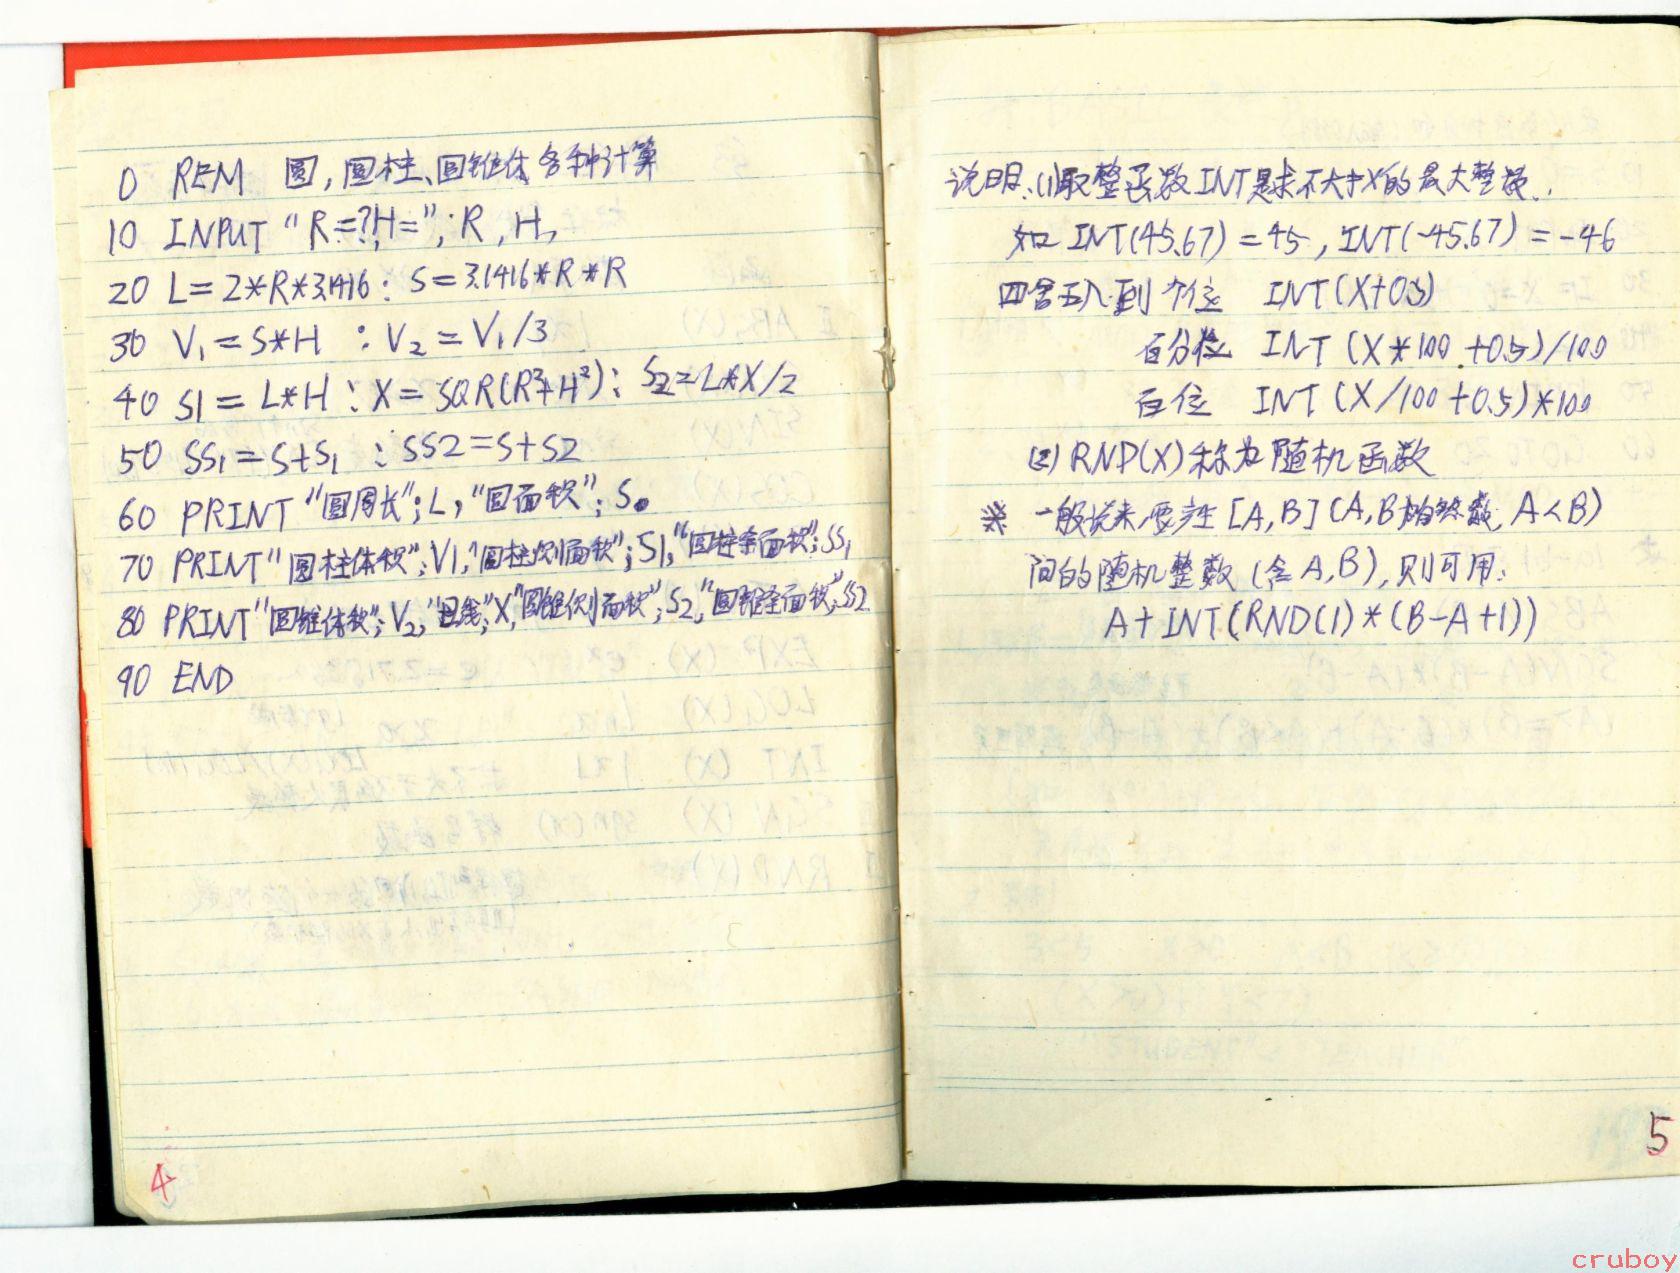 0 REM 圆,圆柱、圆锥体各种计算
10 INPUT "R=?,H=";R,H,
20 L=2*R*3.1416:S=3.1416*R*R
30 V₁=S*H :V₂=V₁/3
40 S1=L*H:X=SQR(R²+H²):S2=L*X/2
50 SS₁=S+S₁ :SS2=S+S2
60 PRINT"圆周长";L,"圆面积";S.
70 PRINT"圆柱体积";V1,"圆柱侧面积";S1,"圆柱全面积";SS₁
80 PRINT"圆锥体积";V₂,"母线";X,"圆锥侧面积";S2,"圆锥全面积";SS2
90 END
4
说明:(1)取整函数INT是求不大于X的最大整数.
如 INT(45.67)=45,INT(-45.67)=-46
四舍五入到 个位 INT(X+0.5)
百分位 INT(X*100+0.5)/100
百位 INT(X/100+0.5)*100
(2)RND(X)称为随机函数
※ 一般说来,要产生[A,B](A,B为自然数,A<B)
间的随机整数(含A,B),则可用:
A+INT(RND(1)*(B-A+1))
5
cruboy